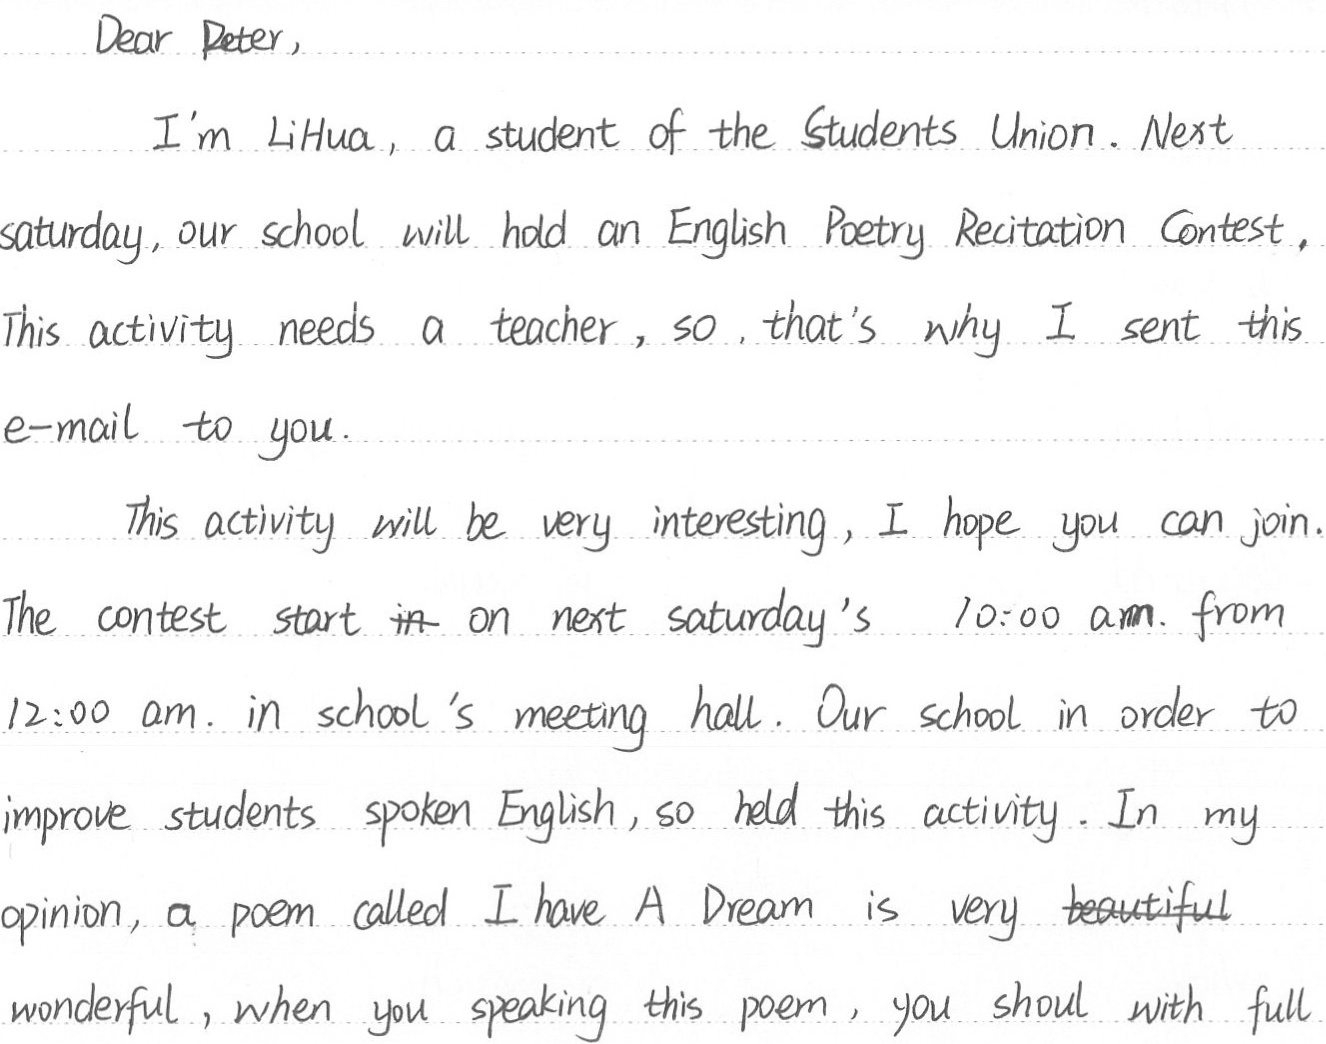 Dear Peter,
I'm LiHua, a student of the Students Union. Next
saturday, our school will hold an English Poetry Recitation Contest.
This activity needs a teacher, so, that's why I sent this
e-mail to you.
This activity will be very interesting, I hope you can join.
The contest start in on next saturday's 10:00 am. from
12:00 am. in school's meeting hall. Our school in order to
improve students spoken English, so held this activity. In my
opinion, a poem called I have A Dream is very beautiful
wonderful, when you speaking this poem, you shoul with full